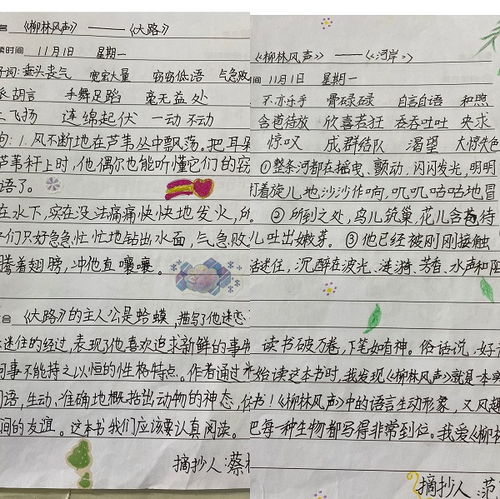 《柳林风声》——《大路》
时间 11月1日 星期一
词:垂头丧气 宽宏大量 窃窃低语 气急败
胡言 手舞足蹈 毫无益处
飞扬 连绵起伏 一动不动
句:1.风不断地在芦苇丛中飘荡。把耳朵
芦苇杆上时,他偶尔也能听懂它们的窃
语了。
在水下,实在没法痛痛快快地发火,所
们只好急急忙忙地钻出水面,气急败
着翅膀,冲他直嚷嚷。
《大路》的主人公是蛤蟆,描写了他迷恋
迷住的经过,表现了他喜欢追求新鲜的事物
事不能持之以恒的性格特点。作者通过
词语,生动、准确地概括出动物的神态,
间的友谊。这本书我们应该要认真阅读。
摘抄人:蔡
《柳林风声》——《河岸》
11月1日 星期一
不亦乐乎 骨碌碌 自言自语 和煦
含苞待放 欣喜若狂 吞吞吐吐 央求
惊叹 成群结队 渴望 大惊失色
①整条河都在摇曳、颤动,闪闪发光,明明
打着旋儿地沙沙作响,叽叽咕咕地冒
。②所到之处,鸟儿筑巢,花儿含苞待
儿吐出嫩芽。③他已经被刚刚接触
迷住,沉醉在波光、涟漪、芳香、水声和阳
读书破万卷,下笔如有神。俗话说,好
始读这本书时,我发现《柳林风声》就是本
书!《柳林风声》中的语言生动形象,又风趣
把每一种生物都写得非常到位。我爱《柳林
摘抄人: